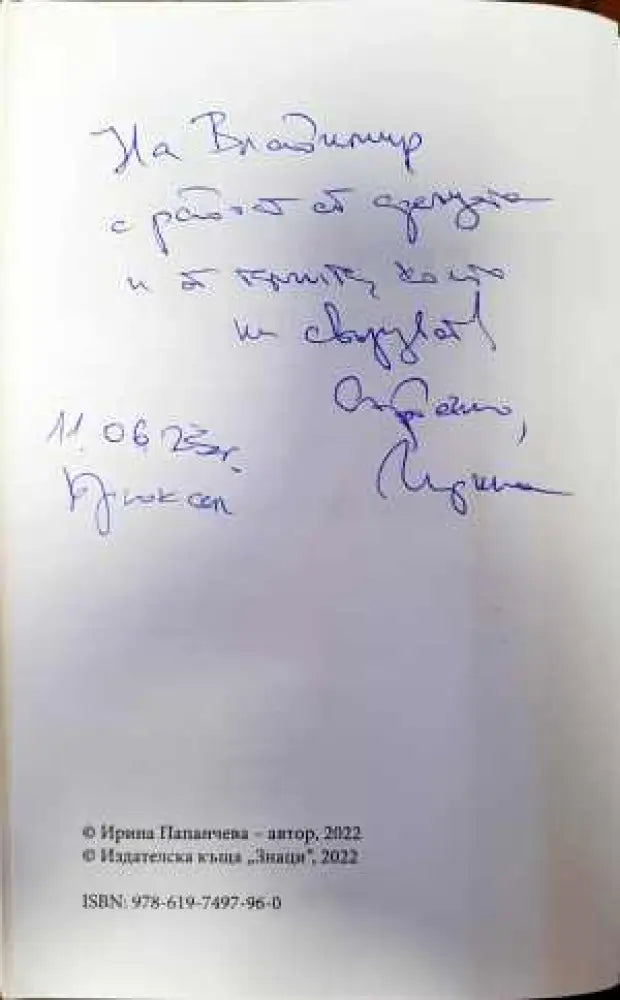 На Владимир
с радост от срещата
и от книгите, които
ни свързват!
Сърдечно,
11.06.23г. Ирина
Брюксел
© Ирина Папанчева – автор, 2022
© Издателска къща „Знаци", 2022
ISBN: 978-619-7497-96-0